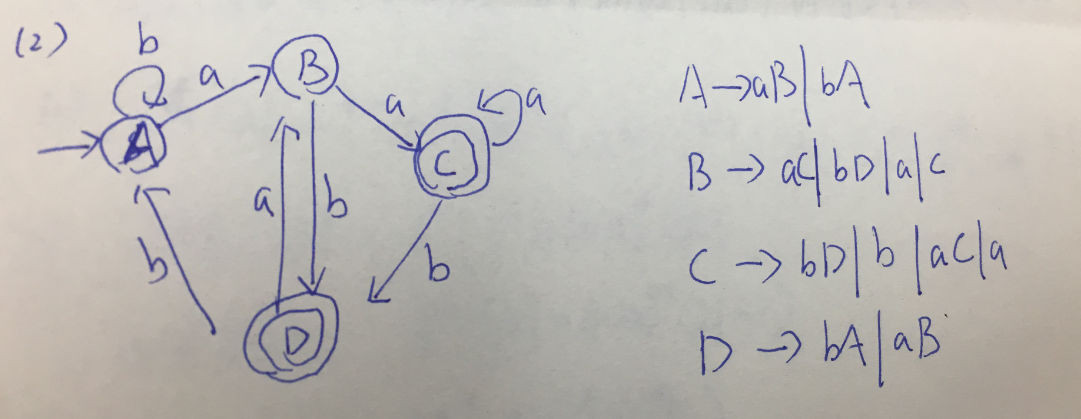 (2)
b
a
B
A
a
a
C
a
b
b
b
D
A→aB|bA
B→aC|bD|a|c
C→bD|b|aC|a
D→bA|aB